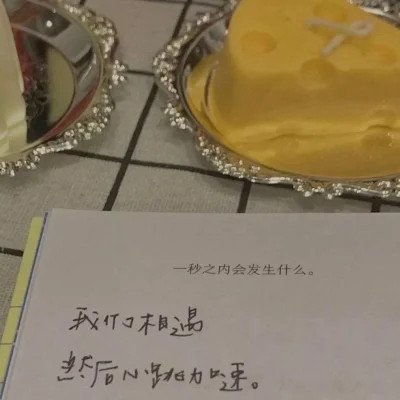 一秒之内会发生什么。
我们相遇
然后心跳加速。